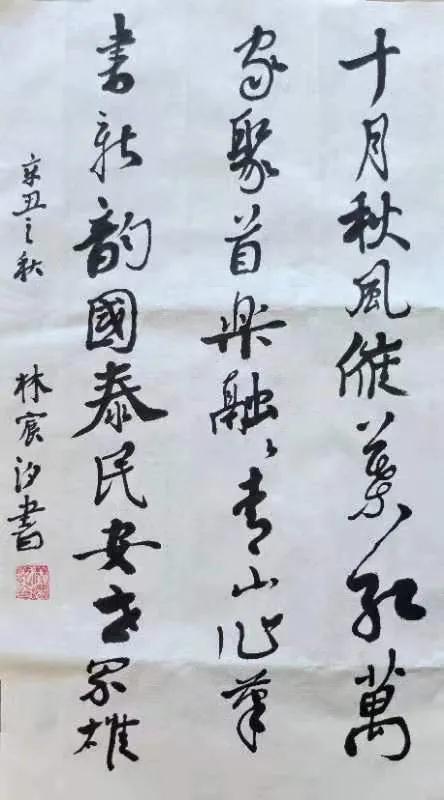 十月秋風催葉红萬
家聚首樂融々青山作筆
書新韵國泰民安世界雄
辛丑之秋
林宸汐書